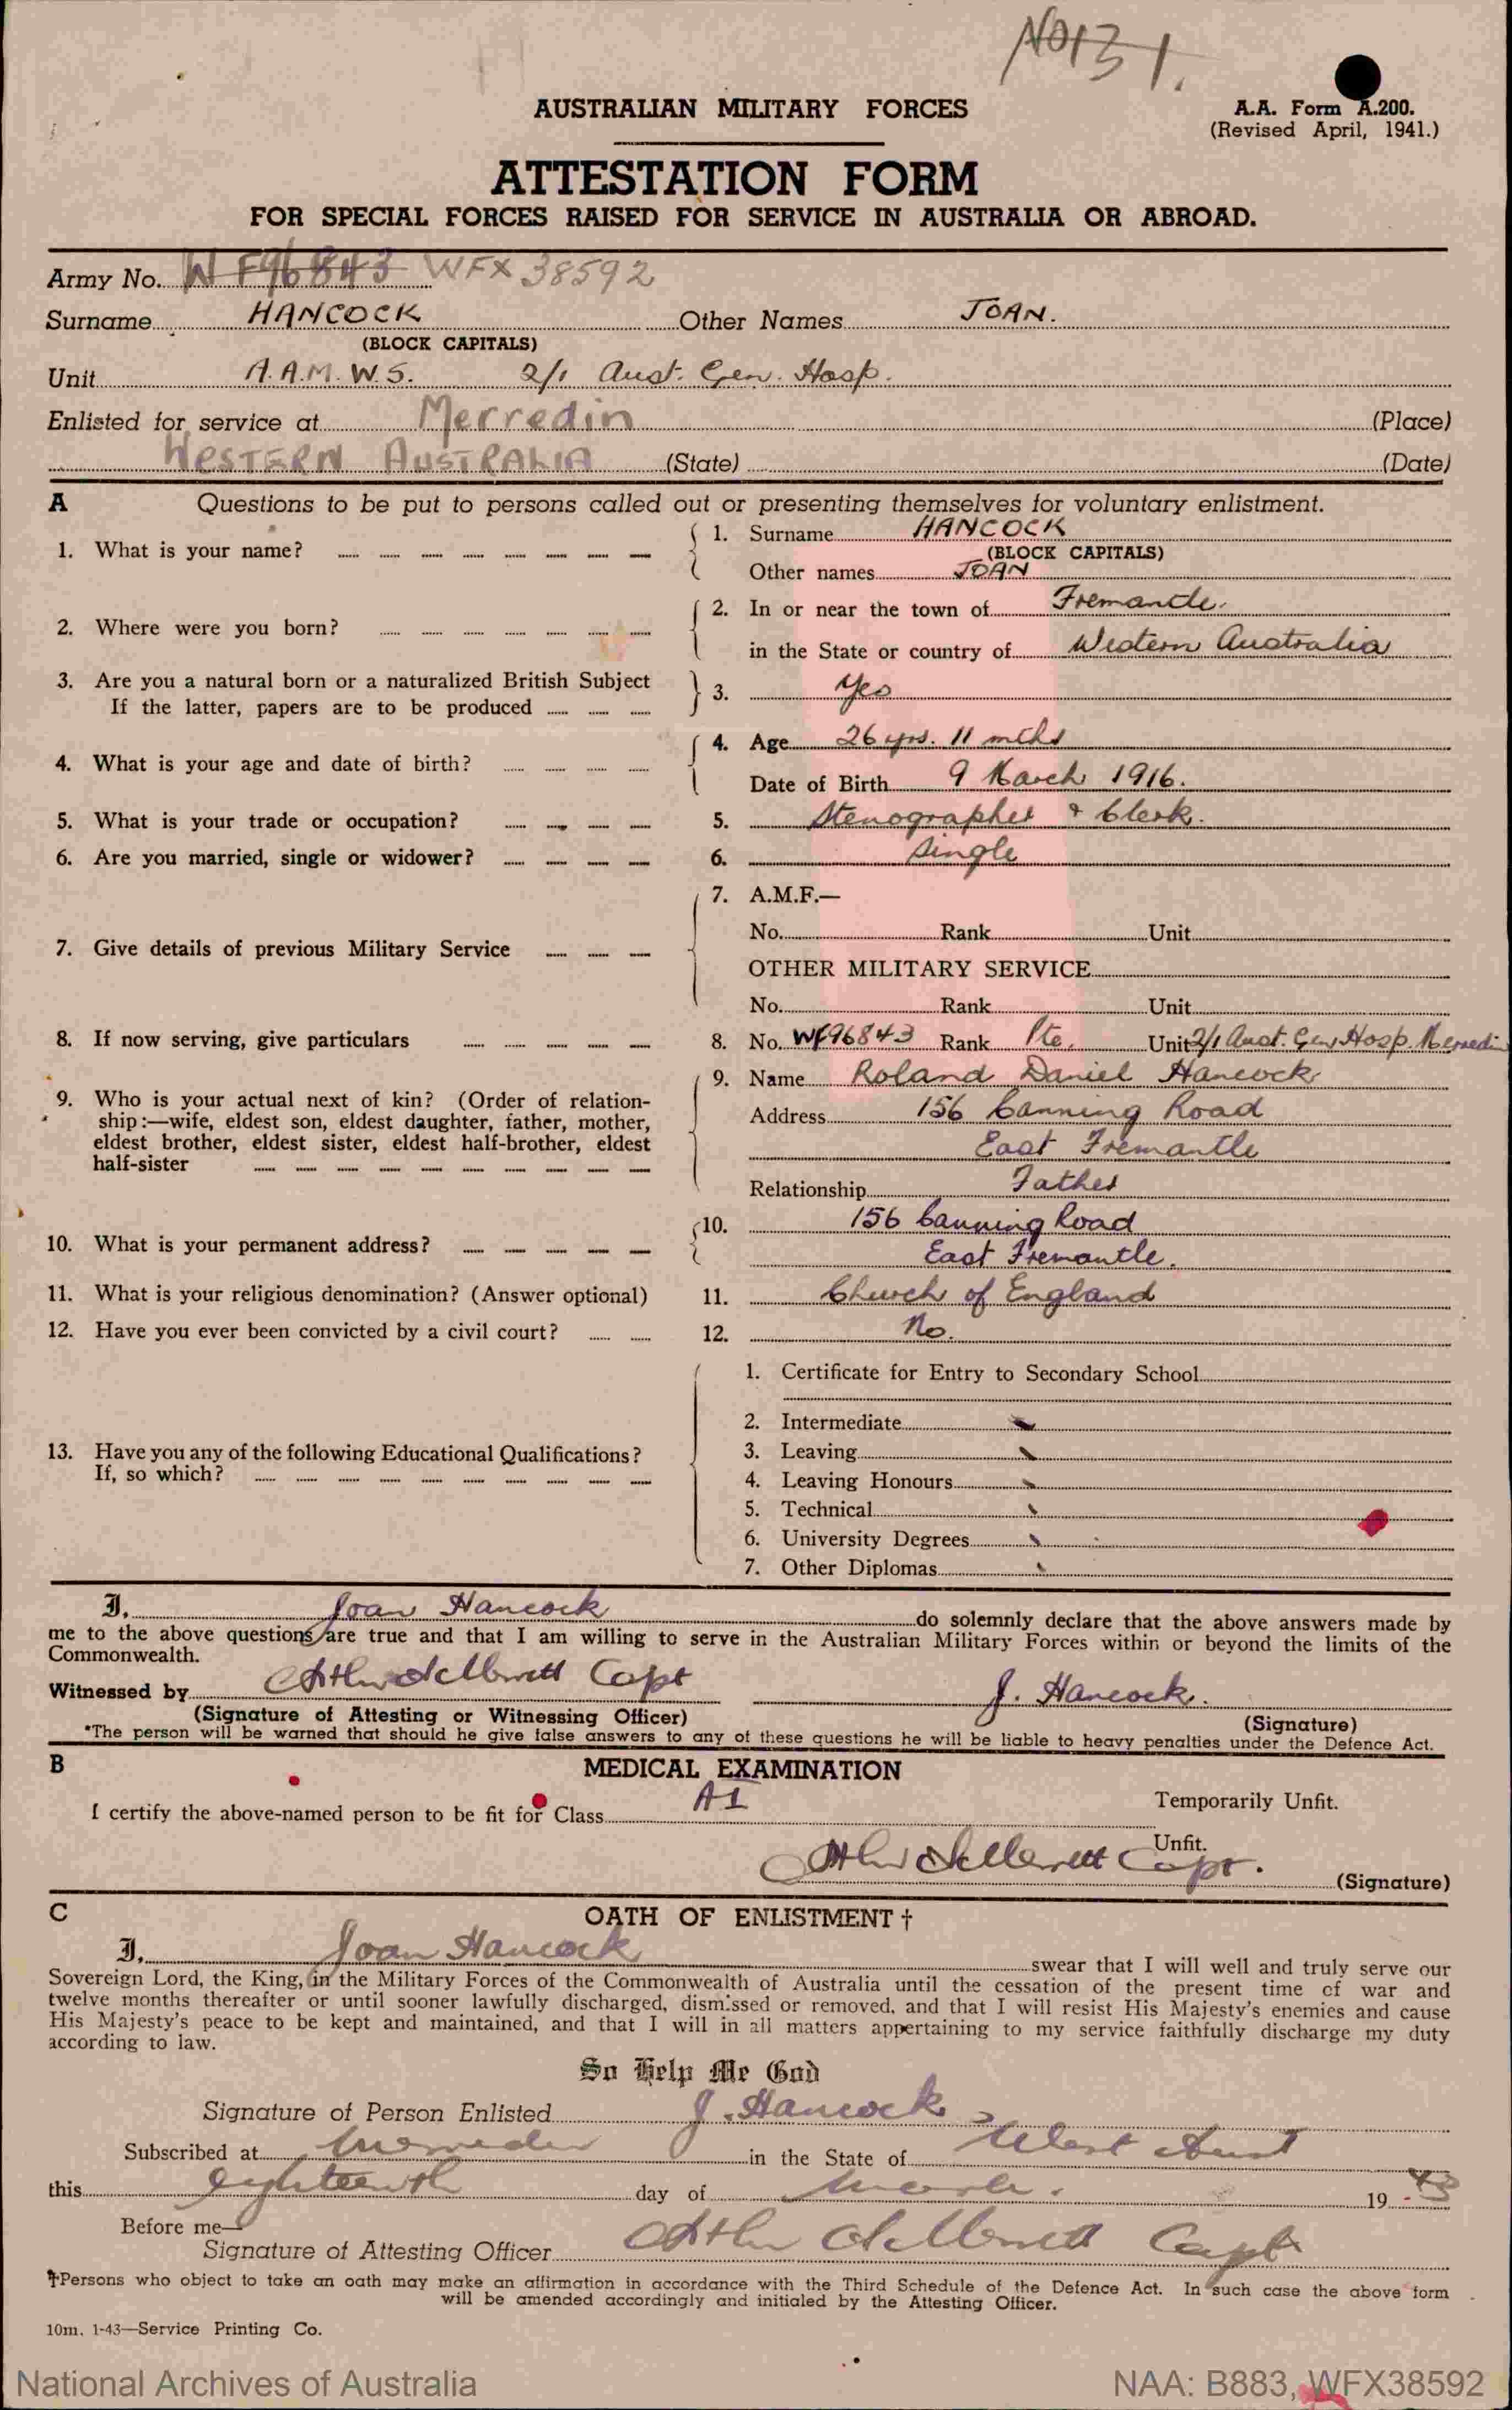 No 131.
AUSTRALIAN MILITARY FORCES
A.A. Form A.200.
(Revised April, 1941.)
ATTESTATION FORM
FOR SPECIAL FORCES RAISED FOR SERVICE IN AUSTRALIA OR ABROAD.
Army No. WF96843 WFX 38592
Surname HANCOCK Other Names JOAN.
(BLOCK CAPITALS)
Unit A.A.M.W.S. 2/1 Aust. Gen. Hosp.
Enlisted for service at Merredin (Place)
WESTERN AUSTRALIA (State) (Date)
A Questions to be put to persons called out or presenting themselves for voluntary enlistment.
1. What is your name? 1. Surname HANCOCK
(BLOCK CAPITALS)
Other names JOAN
2. Where were you born? 2. In or near the town of Fremantle.
in the State or country of Western Australia
3. Are you a natural born or a naturalized British Subject
If the latter, papers are to be produced 3. Yes
4. What is your age and date of birth? 4. Age 26 yrs. 11 mths
Date of Birth 9 March 1916.
5. What is your trade or occupation? 5. Stenographer & Clerk.
6. Are you married, single or widower? 6. Single
7. Give details of previous Military Service 7. A.M.F.—
No. Rank Unit
OTHER MILITARY SERVICE
No. Rank Unit
8. If now serving, give particulars 8. No. WF96843 Rank Pte. Unit 2/1 Aust. Gen Hosp. Merredin
9. Who is your actual next of kin? (Order of relation-
ship:—wife, eldest son, eldest daughter, father, mother,
eldest brother, eldest sister, eldest half-brother, eldest
half-sister
9. Name Roland Daniel Hancock
Address 156 Canning Road
East Fremantle
Relationship Father
10. What is your permanent address? 10. 156 Canning Road
East Fremantle.
11. What is your religious denomination? (Answer optional) 11. Church of England
12. Have you ever been convicted by a civil court? 12. No.
13. Have you any of the following Educational Qualifications?
If, so which?
1. Certificate for Entry to Secondary School
2. Intermediate
3. Leaving
4. Leaving Honours
5. Technical
6. University Degrees
7. Other Diplomas
I, Joan Hancock do solemnly declare that the above answers made by
me to the above questions are true and that I am willing to serve in the Australian Military Forces within or beyond the limits of the
Commonwealth.
Witnessed by Capt J. Hancock.
(Signature of Attesting or Witnessing Officer) (Signature)
*The person will be warned that should he give false answers to any of these questions he will be liable to heavy penalties under the Defence Act.
B MEDICAL EXAMINATION
I certify the above-named person to be fit for Class A1 Temporarily Unfit.
Unfit.
Capt. (Signature)
C OATH OF ENLISTMENT †
I, Joan Hancock swear that I will well and truly serve our
Sovereign Lord, the King, in the Military Forces of the Commonwealth of Australia until the cessation of the present time of war and
twelve months thereafter or until sooner lawfully discharged, dismissed or removed, and that I will resist His Majesty's enemies and cause
His Majesty's peace to be kept and maintained, and that I will in all matters appertaining to my service faithfully discharge my duty
according to law.
So Help Me God
Signature of Person Enlisted J. Hancock
Subscribed at Merredin in the State of West Aust
this eighteenth day of March. 19 43
Before me—
Signature of Attesting Officer Capt
†Persons who object to take an oath may make an affirmation in accordance with the Third Schedule of the Defence Act. In such case the above form
will be amended accordingly and initialed by the Attesting Officer.
10m. 1-43—Service Printing Co.
National Archives of Australia
NAA: B883, WFX38592